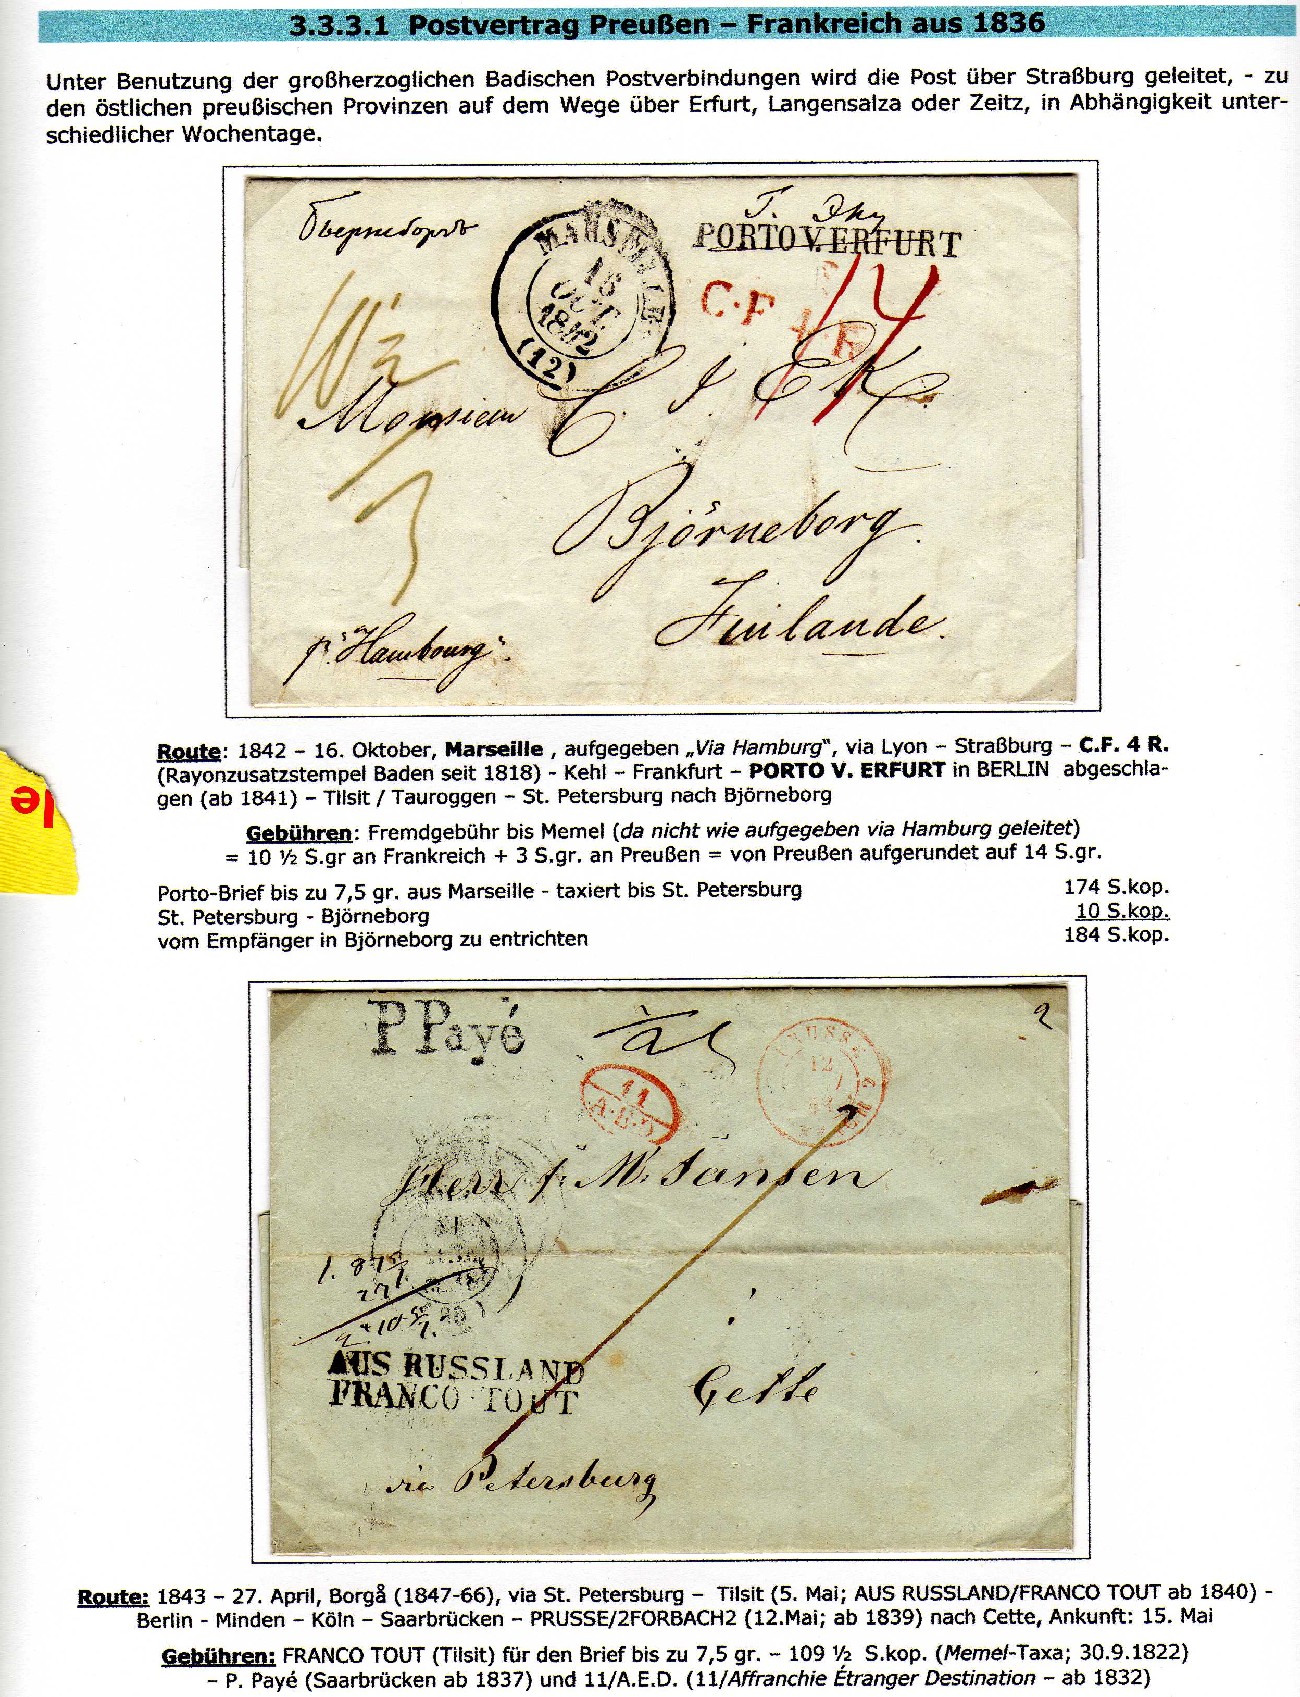 3.3.3.1 Postvertrag Preußen – Frankreich aus 1836
Unter Benutzung der großherzoglichen Badischen Postverbindungen wird die Post über Straßburg geleitet, - zu
den östlichen preußischen Provinzen auf dem Wege über Erfurt, Langensalza oder Zeitz, in Abhängigkeit unter-
schiedlicher Wochentage.
MARSEILLE
16
OCT.
1842
(12)
PORTO V. ERFURT
C.F. 4.R.
14
Monsieur C. J. EK.
3
Björneborg.
Finlande.
pr "Hambourg".
le
Route: 1842 – 16. Oktober, Marseille , aufgegeben „Via Hamburg“, via Lyon – Straßburg – C.F. 4 R.
(Rayonzusatzstempel Baden seit 1818) - Kehl – Frankfurt – PORTO V. ERFURT in BERLIN abgeschla-
gen (ab 1841) – Tilsit / Tauroggen – St. Petersburg nach Björneborg
Gebühren: Fremdgebühr bis Memel (da nicht wie aufgegeben via Hamburg geleitet)
= 10 ½ S.gr an Frankreich + 3 S.gr. an Preußen = von Preußen aufgerundet auf 14 S.gr.
Porto-Brief bis zu 7,5 gr. aus Marseille - taxiert bis St. Petersburg 174 S.kop.
St. Petersburg - Björneborg 10 S.kop.
vom Empfänger in Björneborg zu entrichten 184 S.kop.
P Payé
2
11
A.E.D.
12
Herr J. M. Jansen
AUS RUSSLAND
FRANCO TOUT
Cette
via Petersburg
Route: 1843 – 27. April, Borgå (1847-66), via St. Petersburg – Tilsit (5. Mai; AUS RUSSLAND/FRANCO TOUT ab 1840) -
Berlin - Minden – Köln – Saarbrücken – PRUSSE/2FORBACH2 (12.Mai; ab 1839) nach Cette, Ankunft: 15. Mai
Gebühren: FRANCO TOUT (Tilsit) für den Brief bis zu 7,5 gr. – 109 ½ S.kop. (Memel-Taxa; 30.9.1822)
– P. Payé (Saarbrücken ab 1837) und 11/A.E.D. (11/Affranchie Étranger Destination – ab 1832)